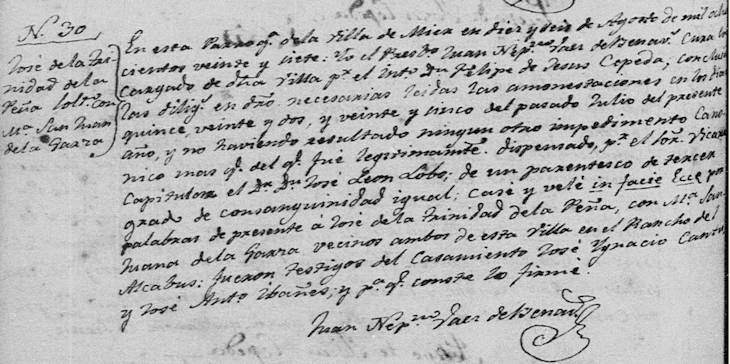 N. 30
José de la Tri-
nidad de la
Peña solt. Con
Ma. San Juan
de la Garza
En esta Parroq.l de la Villa de Mier en diez y seis de Agosto de mil ocho
cientos veinte y siete: Yo el Presbo. Juan Nep.no Saes de Benav.s Cura
cargado de dha Villa pr. el Dn. Felipe de Jesus Cepeda; conclusas
las dilig.s en dro. necesarias leidas las amonestaciones en los dias
quince, veinte y dos, y veinte y cinco del pasado Julio del presente
año, y no haviendo resultado ningun otro impedimento Cano-
nico mas q.e del q.e fue legitimamte. dispensado, pr. el Sor. Vicario
Capitular el Dr. Dn. José Leon Lobo; de un parentesco de tercer
grado de consanguinidad igual; casé y velé in facie Ecce por
palabras de presente á José de la Trinidad de la Peña, con Ma. San
Juana de la Garza vecinos ambos de esta Villa en el Rancho del
Alcabus: fueron testigos del Casamiento José Ygnacio Cantu,
y José Anto. Ibañes; y pa. q.e conste lo firmé.
Juan Nep.no Saes de Benavs.